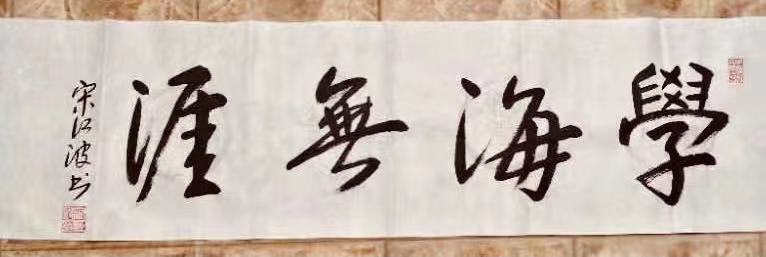 學海無涯
宋江波书